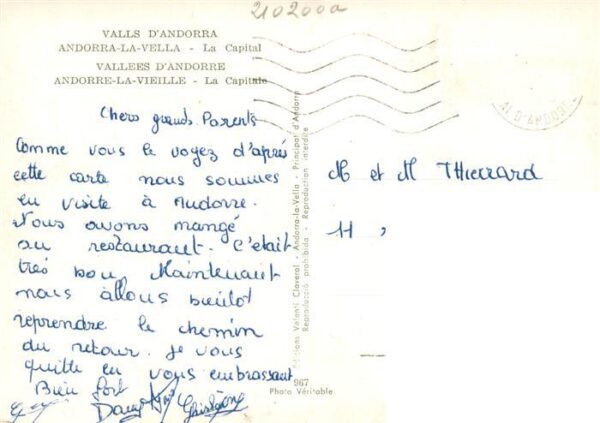 210200a
VALLS D'ANDORRA
ANDORRA-LA-VELLA - La Capital
VALLEES D'ANDORRE
ANDORRE-LA-VIEILLE - La Capitale
Chers grands Parents
Comme vous le voyez d'après
cette carte nous sommes
en visite à Andorre.
Nous avons mangé
au restaurant. C'était
très bon. Maintenant
nous allons bientôt
reprendre le chemin
du retour. Je vous
quitte en vous embrassant
Bien fort
M et M Thierrard
11 ,
Editions Valentí Claverol - Andorra-la-Vella - Principat d'Andorra
Reproducció prohibida - Reproduction interdite
967
Photo Véritable